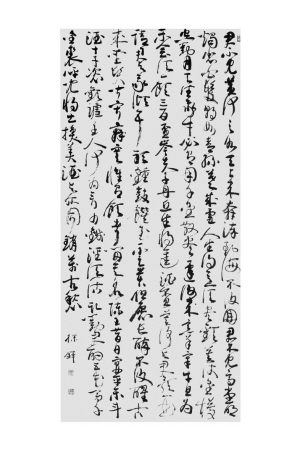 君不見黃河之水天上來奔流到海不復回君不見高堂明
鏡悲白髮朝如青絲暮成雪人生得意須盡歡莫使金樽
空對月天生我材必有用千金散盡還復來烹羊宰牛且為
樂會須一飲三百杯岑夫子丹丘生將進酒君莫停與君歌一曲
請君為我傾耳聽鐘鼓饌玉不足貴但願長醉不復醒古
來聖賢皆寂寞惟有飲者留其名陳王昔日宴平樂斗
酒十千恣歡謔主人何為言少錢徑須沽取對君酌五花馬千
金裘呼兒將出換美酒與爾同銷萬古愁